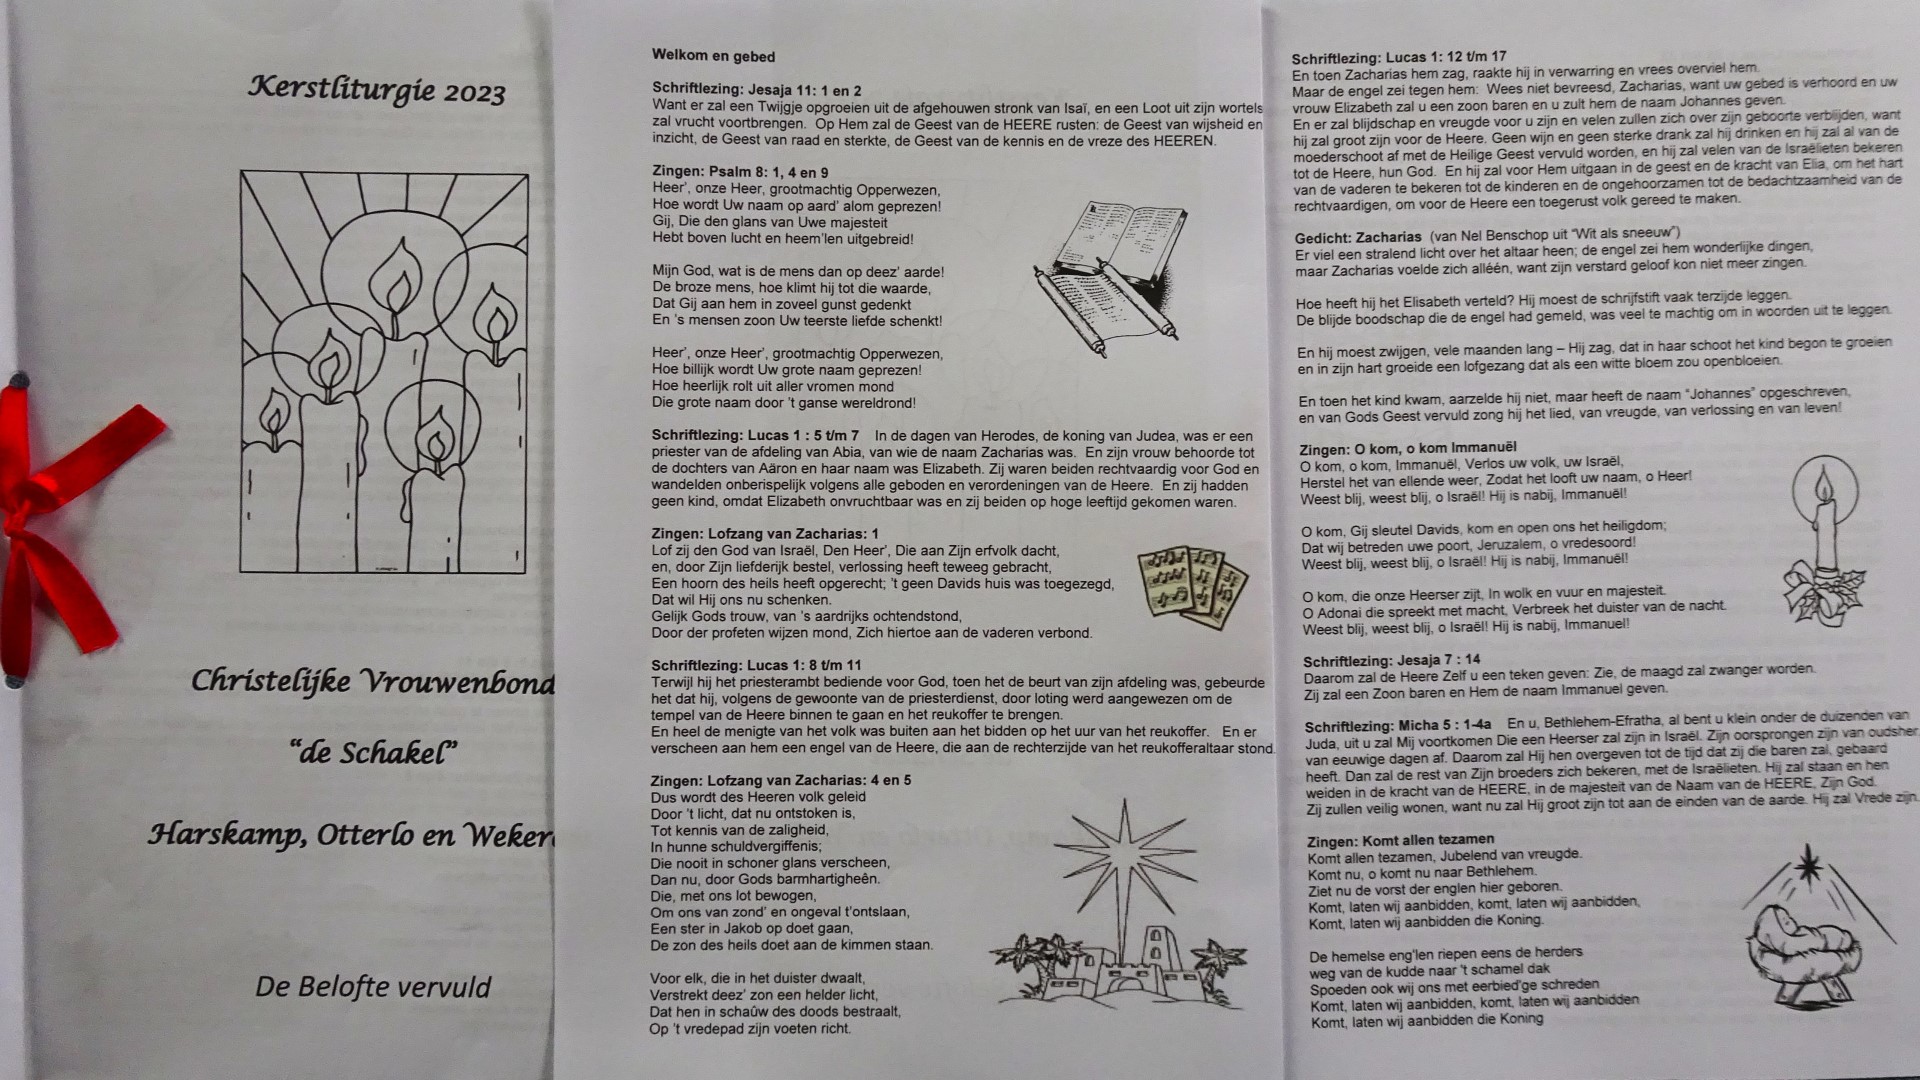 Kerstliturgie 2023
Christelijke Vrouwenbond
“de Schakel”
Harskamp, Otterlo en
De Belofte vervuld
Welkom en gebed
Schriftlezing: Jesaja 11: 1 en 2
Want er zal een Twijgje opgroeien uit de afgehouwen stronk van Isaï, en een Loot uit zijn wortels
zal vrucht voortbrengen. Op Hem zal de Geest van de HEERE rusten: de Geest van wijsheid en
inzicht, de Geest van raad en sterkte, de Geest van de kennis en de vreze des HEEREN.
Zingen: Psalm 8: 1, 4 en 9
Heer’, onze Heer, grootmachtig Opperwezen,
Hoe wordt Uw naam op aard’ alom geprezen!
Gij, Die den glans van Uwe majesteit
Hebt boven lucht en heem’len uitgebreid!
Mijn God, wat is de mens dan op deez’ aarde!
De broze mens, hoe klimt hij tot die waarde,
Dat Gij aan hem in zoveel gunst gedenkt
En ’s mensen zoon Uw teerste liefde schenkt!
Heer’, onze Heer’, grootmachtig Opperwezen,
Hoe billijk wordt Uw grote naam geprezen!
Hoe heerlijk rolt uit aller vromen mond
Die grote naam door ’t ganse wereldrond!
Schriftlezing: Lucas 1 : 5 t/m 7 In de dagen van Herodes, de koning van Judea, was er een
priester van de afdeling van Abia, van wie de naam Zacharias was. En zijn vrouw behoorde tot
de dochters van Aäron en haar naam was Elizabeth. Zij waren beiden rechtvaardig voor God en
wandelden onberispelijk volgens alle geboden en verordeningen van de Heere. En zij hadden
geen kind, omdat Elizabeth onvruchtbaar was en zij beiden op hoge leeftijd gekomen waren.
Zingen: Lofzang van Zacharias: 1
Lof zij den God van Israël, Den Heer’, Die aan Zijn erfvolk dacht,
en, door Zijn liefderijk bestel, verlossing heeft teweeg gebracht,
Een hoorn des heils heeft opgerecht; ’t geen Davids huis was toegezegd,
Dat wil Hij ons nu schenken.
Gelijk Gods trouw, van ’s aardrijks ochtendstond,
Door der profeten wijzen mond, Zich hiertoe aan de vaderen verbond.
Schriftlezing: Lucas 1: 8 t/m 11
Terwijl hij het priesterambt bediende voor God, toen het de beurt van zijn afdeling was, gebeurde
het dat hij, volgens de gewoonte van de priesterdienst, door loting werd aangewezen om de
tempel van de Heere binnen te gaan en het reukoffer te brengen.
En heel de menigte van het volk was buiten aan het bidden op het uur van het reukoffer. En er
verscheen aan hem een engel van de Heere, die aan de rechterzijde van het reukofferaltaar stond.
Zingen: Lofzang van Zacharias: 4 en 5
Dus wordt des Heeren volk geleid
Door ’t licht, dat nu ontstoken is,
Tot kennis van de zaligheid,
In hunne schuldvergiffenis;
Die nooit in schoner glans verscheen,
Dan nu, door Gods barmhartigheên.
Die, met ons lot bewogen,
Om ons van zond’ en ongeval t’ontslaan,
Een ster in Jakob op doet gaan,
De zon des heils doet aan de kimmen staan.
Voor elk, die in het duister dwaalt,
Verstrekt deez’ zon een helder licht,
Dat hen in schaûw des doods bestraalt,
Op ’t vredepad zijn voeten richt.
Schriftlezing: Lucas 1: 12 t/m 17
En toen Zacharias hem zag, raakte hij in verwarring en vrees overviel hem.
Maar de engel zei tegen hem: Wees niet bevreesd, Zacharias, want uw gebed is verhoord en uw
vrouw Elizabeth zal u een zoon baren en u zult hem de naam Johannes geven.
En er zal blijdschap en vreugde voor u zijn en velen zullen zich over zijn geboorte verblijden, want
hij zal groot zijn voor de Heere. Geen wijn en geen sterke drank zal hij drinken en hij zal al van de
moederschoot af met de Heilige Geest vervuld worden, en hij zal velen van de Israëlieten bekeren
tot de Heere, hun God. En hij zal voor Hem uitgaan in de geest en de kracht van Elia, om het hart
van de vaderen te bekeren tot de kinderen en de ongehoorzamen tot de bedachtzaamheid van de
rechtvaardigen, om voor de Heere een toegerust volk gereed te maken.
Gedicht: Zacharias (van Nel Benschop uit “Wit als sneeuw”)
Er viel een stralend licht over het altaar heen; de engel zei hem wonderlijke dingen,
maar Zacharias voelde zich alléén, want zijn verstard geloof kon niet meer zingen.
Hoe heeft hij het Elisabeth verteld? Hij moest de schrijfstift vaak terzijde leggen.
De blijde boodschap die de engel had gemeld, was veel te machtig om in woorden uit te leggen.
En hij moest zwijgen, vele maanden lang – Hij zag, dat in haar schoot het kind begon te groeien
en in zijn hart groeide een lofgezang dat als een witte bloem zou openbloeien.
En toen het kind kwam, aarzelde hij niet, maar heeft de naam “Johannes” opgeschreven,
en van Gods Geest vervuld zong hij het lied, van vreugde, van verlossing en van leven!
Zingen: O kom, o kom Immanuël
O kom, o kom, Immanuël, Verlos uw volk, uw Israël,
Herstel het van ellende weer, Zodat het looft uw naam, o Heer!
Weest blij, weest blij, o Israël! Hij is nabij, Immanuël!
O kom, Gij sleutel Davids, kom en open ons het heiligdom;
Dat wij betreden uwe poort, Jeruzalem, o vredesoord!
Weest blij, weest blij, o Israël! Hij is nabij, Immanuël!
O kom, die onze Heerser zijt, In wolk en vuur en majesteit.
O Adonai die spreekt met macht, Verbreek het duister van de nacht.
Weest blij, weest blij, o Israël! Hij is nabij, Immanuel!
Schriftlezing: Jesaja 7 : 14
Daarom zal de Heere Zelf u een teken geven: Zie, de maagd zal zwanger worden.
Zij zal een Zoon baren en Hem de naam Immanuel geven.
Schriftlezing: Micha 5 : 1-4a En u, Bethlehem-Efratha, al bent u klein onder de duizenden van
Juda, uit u zal Mij voortkomen Die een Heerser zal zijn in Israël. Zijn oorsprongen zijn van oudsher,
van eeuwige dagen af. Daarom zal Hij hen overgeven tot de tijd dat zij die baren zal, gebaard
heeft. Dan zal de rest van Zijn broeders zich bekeren, met de Israëlieten. Hij zal staan en hen
weiden in de kracht van de HEERE, in de majesteit van de Naam van de HEERE, Zijn God.
Zij zullen veilig wonen, want nu zal Hij groot zijn tot aan de einden van de aarde. Hij zal Vrede zijn.
Zingen: Komt allen tezamen
Komt allen tezamen, Jubelend van vreugde.
Komt nu, o komt nu naar Bethlehem.
Ziet nu de vorst der englen hier geboren.
Komt, laten wij aanbidden, komt, laten wij aanbidden,
Komt, laten wij aanbidden die Koning.
De hemelse eng’len riepen eens de herders
weg van de kudde naar ’t schamel dak
Spoeden ook wij ons met eerbied’ge schreden
Komt, laten wij aanbidden, komt, laten wij aanbidden
Komt, laten wij aanbidden die Koning